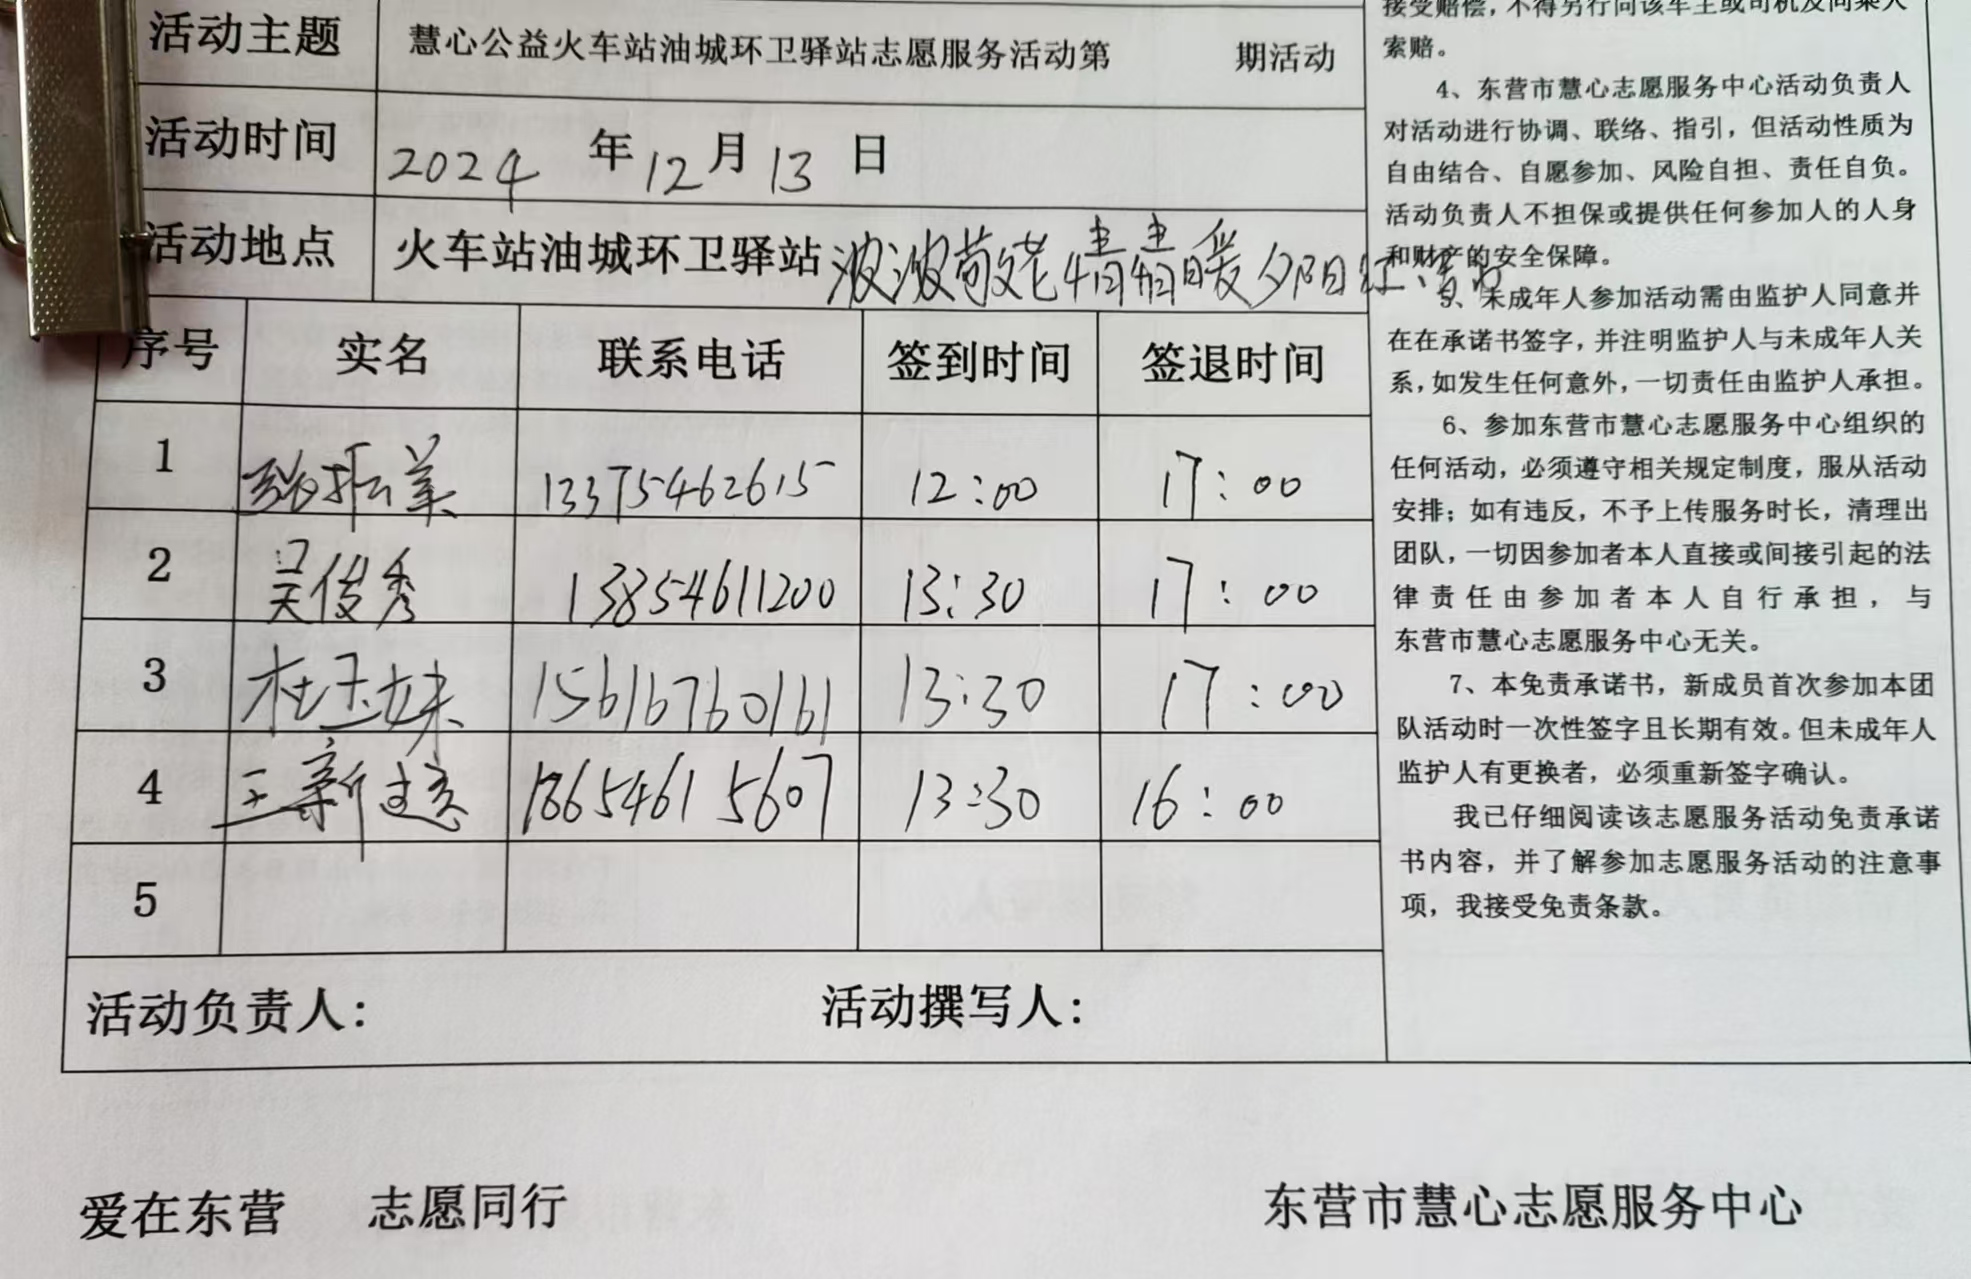 活动主题 慧心公益火车站油城环卫驿站志愿服务活动第 期活动
活动时间 2024 年 12 月 13 日
活动地点 火车站油城环卫驿站 波波敬老 情情暖夕阳红活动
序号 实名 联系电话 签到时间 签退时间
1 张振美 13375462615 12:00 17:00
2 吴俊秀 13854611200 13:30 17:00
3 杜玉妹 15616760161 13:30 17:00
4 王新 18654615607 13:30 16:00
5
活动负责人: 活动撰写人:
接受赔偿，不得另行向该车主或司机及同乘人
索赔。
4、东营市慧心志愿服务中心活动负责人
对活动进行协调、联络、指引，但活动性质为
自由结合、自愿参加、风险自担、责任自负。
活动负责人不担保或提供任何参加人的人身
和财产的安全保障。
5、未成年人参加活动需由监护人同意并
在在承诺书签字，并注明监护人与未成年人关
系，如发生任何意外，一切责任由监护人承担。
6、参加东营市慧心志愿服务中心组织的
任何活动，必须遵守相关规定制度，服从活动
安排；如有违反，不予上传服务时长，清理出
团队，一切因参加者本人直接或间接引起的法
律责任由参加者本人自行承担，与
东营市慧心志愿服务中心无关。
7、本免责承诺书，新成员首次参加本团
队活动时一次性签字且长期有效。但未成年人
监护人有更换者，必须重新签字确认。
我已仔细阅读该志愿服务活动免责承诺
书内容，并了解参加志愿服务活动的注意事
项，我接受免责条款。
爱在东营 志愿同行 东营市慧心志愿服务中心